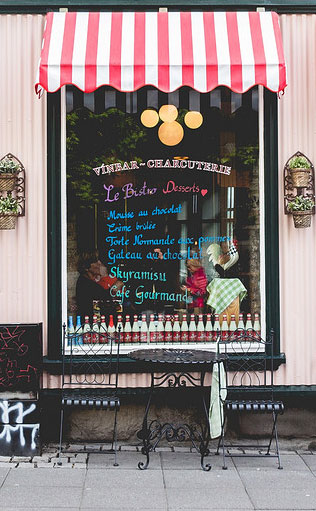 VÍNBAR - CHARCUTERIE
Le Bistro Desserts
Mousse au chocolat
Crème brûlée
Torte Normande aux pommes
Gateau au chocolat
Skyramisu
Café Gourmand